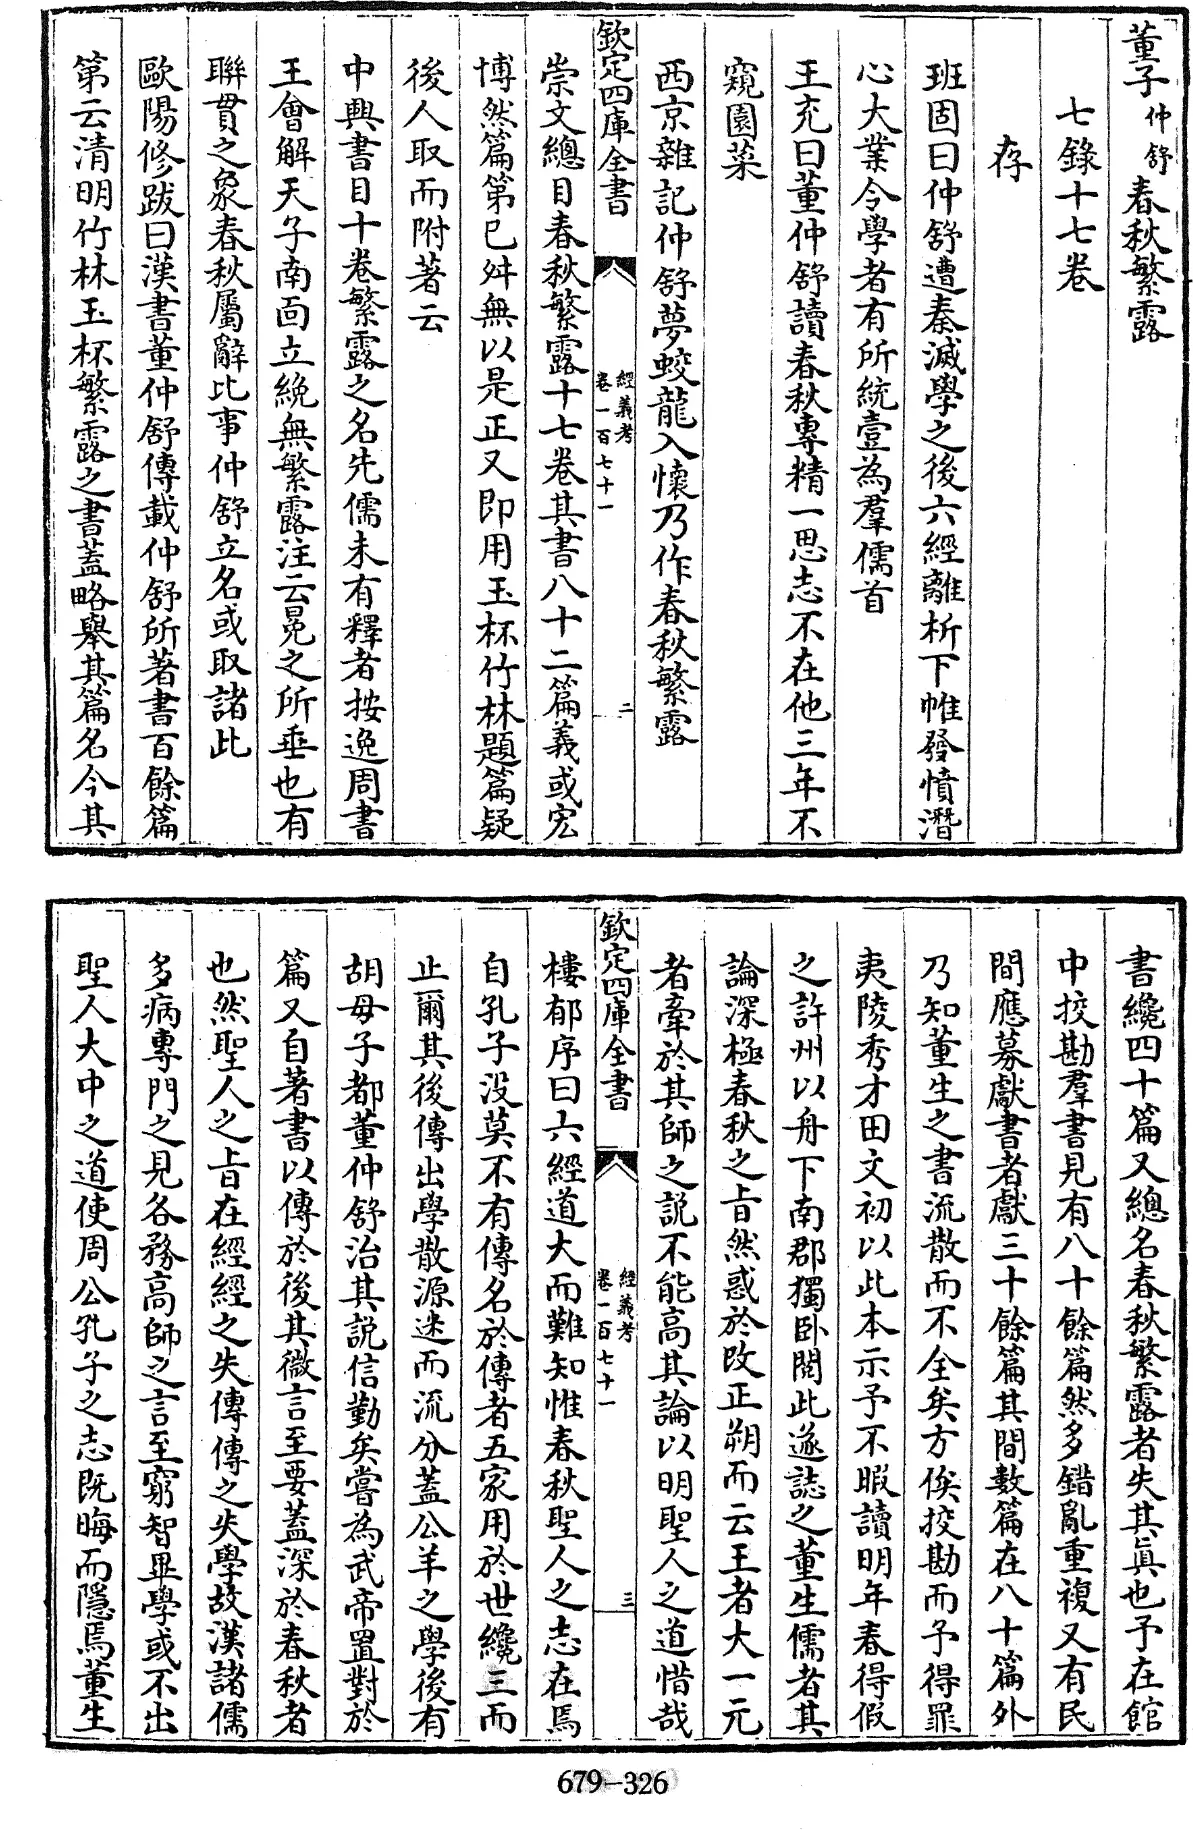 董子仲舒春秋繁露
七錄十七卷
存
班固曰仲舒遭秦滅學之後六經離析下帷發憤潛
心大業令學者有所統壹為羣儒首
王充曰董仲舒讀春秋專精一思志不在他三年不
窺園菜
西京雜記仲舒夢蛟龍入懷乃作春秋繁露
欽定四庫全書
經義考
卷一百七十一
二
崇文總目春秋繁露十七卷其書八十二篇義或宏
博然篇第已舛無以是正又即用玉杯竹林題篇疑
後人取而附著云
中興書目十卷繁露之名先儒未有釋者按逸周書
王會解天子南面立絻無繁露注云冕之所垂也有
聯貫之象春秋屬辭比事仲舒立名或取諸此
歐陽修跋曰漢書董仲舒傳載仲舒所著書百餘篇
第云清明竹林玉杯繁露之書蓋略舉其篇名今其
書纔四十篇又總名春秋繁露者失其真也予在館
中挍勘羣書見有八十餘篇然多錯亂重複又有民
間應募獻書者獻三十餘篇其間數篇在八十篇外
乃知董生之書流散而不全矣方俟挍勘而予得罪
夷陵秀才田文初以此本示予不暇讀明年春得假
之許州以舟下南郡獨臥閱此遂誌之董生儒者其
論深極春秋之旨然惑於改正朔而云王者大一元
者牽於其師之説不能高其論以明聖人之道惜哉
欽定四庫全書
經義考
卷一百七十一
三
樓郁序曰六經道大而難知惟春秋聖人之志在焉
自孔子没莫不有傳名於傳者五家用於世纔三而
止爾其後傳出學散源迷而流分蓋公羊之學後有
胡母子都董仲舒治其説信勤矣嘗為武帝置對於
篇又自著書以傳於後其微言至要蓋深於春秋者
也然聖人之旨在經經之失傳傳之失學故漢諸儒
多病專門之見各務高師之言至窮智畢學或不出
聖人大中之道使周公孔子之志既晦而隱焉董生
679-326